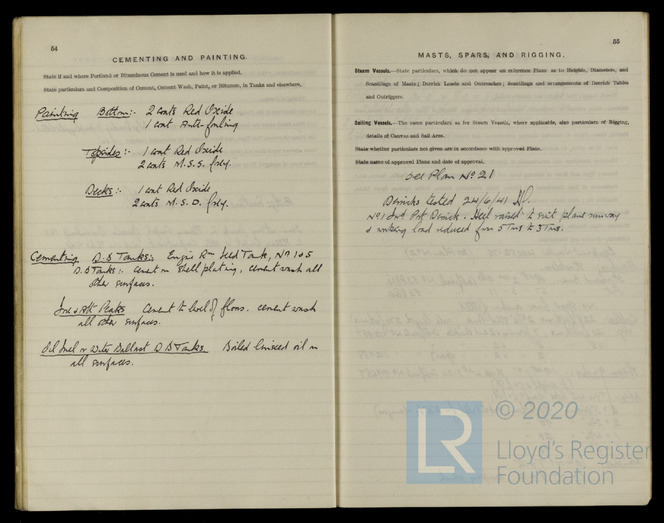 54
CEMENTING AND PAINTING.
State if and where Portland or Bituminous Cement is used and how it is applied.
State particulars and Composition of Cement, Cement Wash, Paint, or Bitumen, in Tanks and elsewhere.
Painting Bottom:- 2 coats Red Oxide
1 coat Anti-fouling
Topsides:- 1 coat Red Oxide
2 coats M.S.S. Grey.
Decks:- 1 coat Red Oxide
2 coats M.S.D. Grey.
Cementing D.B Tanks:- Engine Rm Feed Tank, No 1 & 5
D.B Tanks:- cement on shell plating, cement wash all
other surfaces.
Fore & Aft Peaks Cement to level of floors. cement wash
all other surfaces.
Oil Fuel or Water Ballast D.B Tanks. Boiled linseed oil on
all surfaces.
55
MASTS, SPARS, AND RIGGING.
Steam Vessels.—State particulars, which do not appear on reference Plans as to Heights, Diameters, and
Scantlings of Masts; Derrick Loads and Outreaches; Scantlings and arrangements of Derrick Tables
and Outriggers.
Sailing Vessels.—The same particulars as for Steam Vessels, where applicable, also particulars of Rigging,
details of Canvas and Sail Area.
State whether particulars not given are in accordance with approved Plans.
State name of approved Plans and date of approval.
See Plan No 21
Derricks tested 24/6/41
No 1 Port Derrick. Heel raised to suit plane runway
& working load reduced from 5 Tons to 3 Tons.
LR
© 2020
Lloyd's Register
Foundation